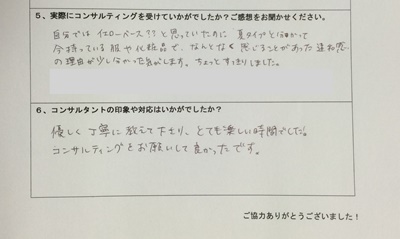 5、実際にコンサルティングを受けていかがでしたか？ご感想をお聞かせください。
自分では イエローベース?? と思っていたのに 夏タイプと分かって
今持っている服や化粧品で、なんとなく感じることがあった違和感
の理由が少し分かった気がします。ちょっとすっきりしました。
6、コンサルタントの印象や対応はいかがでしたか？
優しく丁寧に教えて下さり、とても楽しい時間でした。
コンサルティングをお願いして良かったです。
ご協力ありがとうございました！